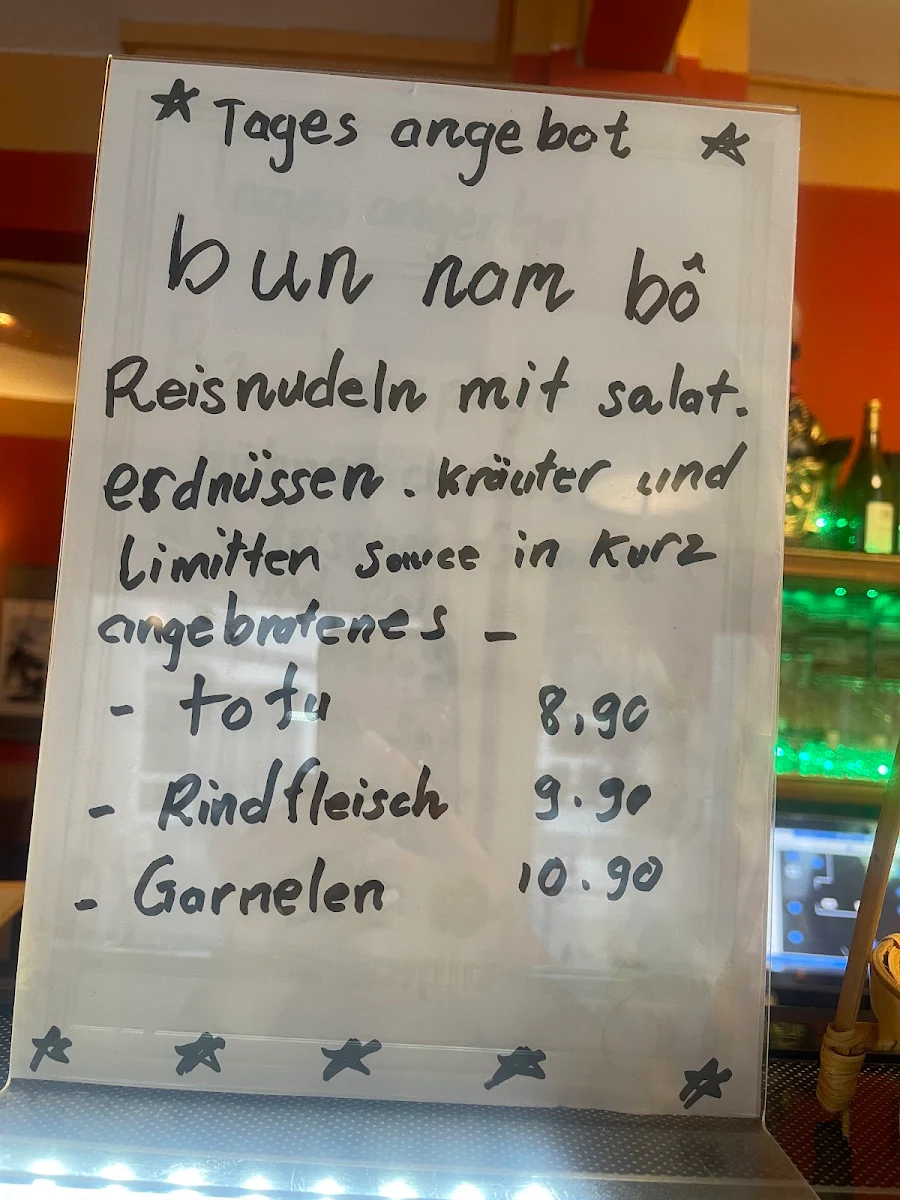 Tages angebot
bun nam bô
Reisnudeln mit salat.
erdnüssen. kräuter und
Limitten sauce in kurz
angebratenes -
- tofu 8,90
- Rindfleisch 9.90
- Garnelen 10.90